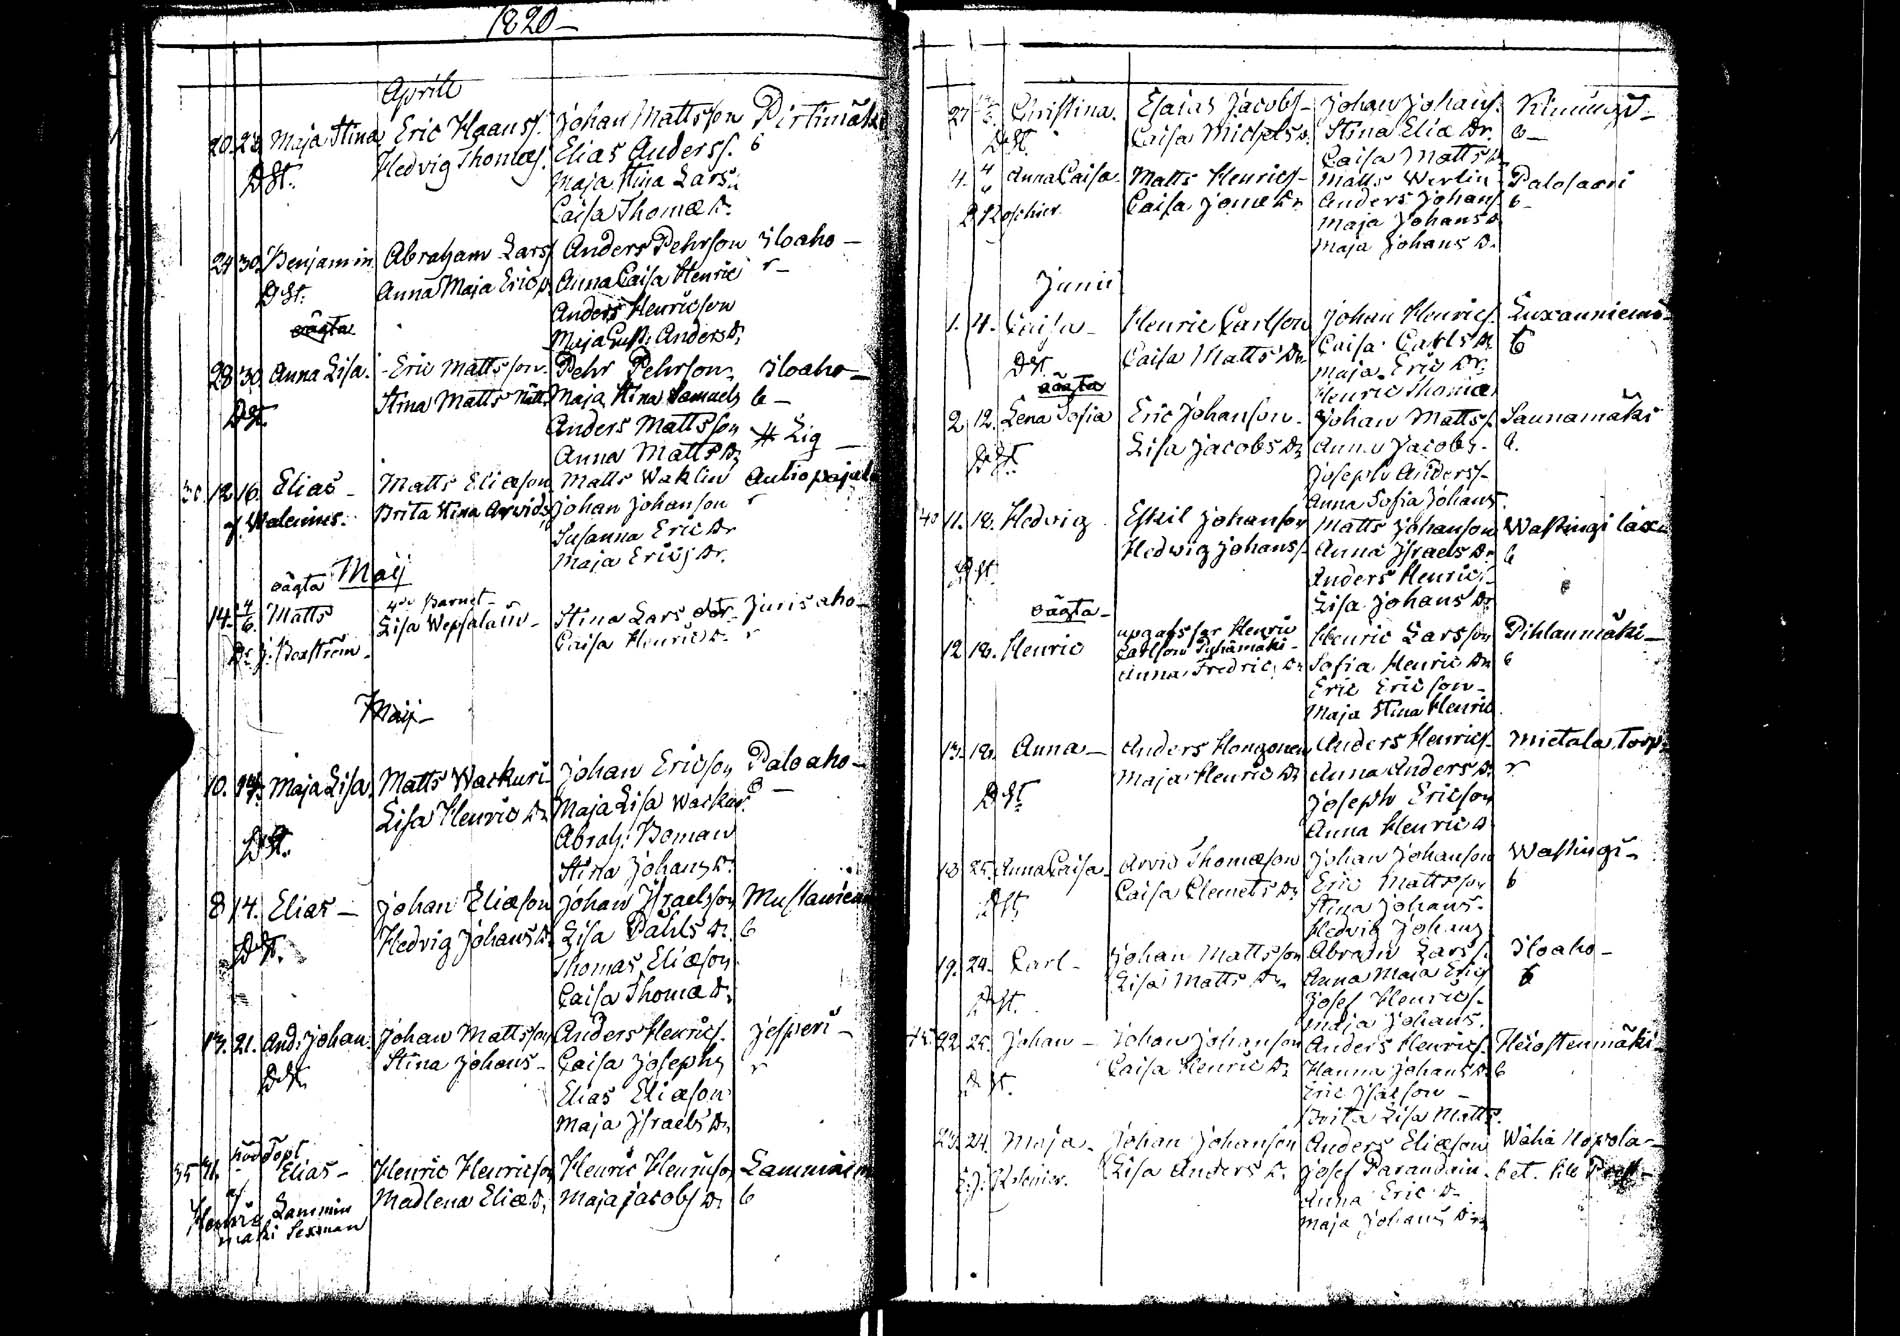 1820-
Aprill
20. 23. Maja Stina Eric Haanss. Johan Mattsson Pirtimäki
D St. Hedvig Thomæs. Elias Anderss. 6
Maja Stina Lars
Caisa Thomæ Dr
24 30. Benjamin Abraham Lars Anders Pehrson Iloaho -
D St. Anna Maja Erics Anna Caisa Henric r -
oägta Anders Henricson
Maja Anders Dr
28 30 Anna Lisa. Eric Mattsson. Pehr Pehrson Iloaho -
D St. Stina Matts Maja Stina Samuels 6 -
Anders Mattsson
Anna Matts Dr
30. 12. 16. Elias - Matts Eliæson Matts Waklin Autiopajula
Brita Stina Arvids Johan Johanson r
Susanna Eric Dr
Maja Erics Dr.
oägta Maij
14. Matts 4de Barnet - Stina Lars dotr Juris aho -
Lisa Wepsaläin - Caisa Henric D. r
Maij -
10. 14. Maja Lisa. Matts Wackuri Johan Ericson Paloaho -
Lisa Henric Dr Maja Lisa Wackur. 6 -
D St. Abrah: Boman
Stina Johans Dr.
8 14. Elias - Johan Eliæson Johan Israelsson Mustaniem
D St. Hedvig Johans D. Lisa Påhls Dr. 6
Thomas Eliæson
Caisa Thomæ Dr
17. 21. And: Johan. Johan Mattsson Anders Henrics. Jesperi -
D St. Stina Johans - Caisa Josephs r
Elias Eliæson
Maja Israels Dr
nöddöpt
35 Elias - Henric Henricson Henric Henricson Lammin
af Madlena Eliæ D. Maja Jacobs Dr 6
Henric Lammin
mäki Sexman
27 Christina. Esaias Jacobs - Johan Johans. Kimingi -
D St. Caisa Michels D. Stina Eliæ Dr. 6 -
Caisa Matts D
4. Anna Caisa. Matts Henrics - Matts Werlin - Palosaari
Caisa Jonæ Dr Anders Johans 6 -
Maja Johans D
Maja Johans D.
Junii
1. 4. Caisa - Henric Carlson Johan Henrics. Luxanniemi -
D St. Caisa Matts Dr Caisa Carls Dr 6
oägta Maja Eric Dr.
Henric Thomæ
2 12. Lena Sofia Eric Johanson. Johan Matts. Saunamäki
D St. Lisa Jacobs Dr Anna Jacobs. 6.
Joseph Anderss -
Anna Sofia Johans.
40 11. 18. Hedvig Eskil Johanson Matts Johanson Wastingi
D St. Hedwig Johans. Anna Israels Dr 6
Anders Henrics -
Lisa Johans Dr
oägta -
12 18. Henric upgafs far Henric Henric Larsson Pihlanmäki -
Carlson Pyhämäki - Sofia Henric Dr 6
Anna Fredric Dr Eric Ericson -
Maja Stina Henric
13. 18. Anna - Anders Hongonen Anders Henrics - Mietala Torp
D St. Maja Henric Dr Anna Anders D. r
Joseph Ericson
Anna Henric D
18 25. Anna Caisa - Arvid Thomæson Johan Johanson Wastingi -
D St. Caisa Clemets Dr Eric Mattsson 6
Stina Johans -
Hedvig Johans
19. 24. Carl - Johan Mattsson Abram Larss. Iloaho -
D St. Lisa Matts Dr Anna Maja Erics 6
Josef Henrics.
Maja Johans.
45. 22 25. Johan - Johan Johanson Anders Henrics. Heiostenmäki -
D St. Caisa Henric Dr Hanna Johans D. 6
Eric
Brita Lisa Matts
23. 24. Maja - Johan Johanson Anders Eliæson Wähä Hopola -
Lisa Anders D. Josef Parandain.
Anna Eric D
Maja Johans Dr